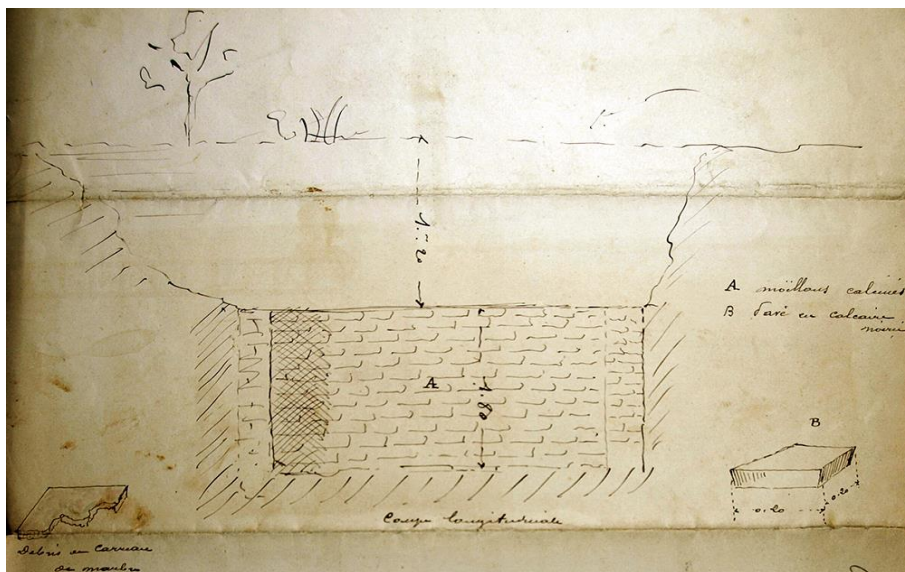 1.m20
A moïllons calcinés
B Pavé en calcaire
noirci
A
1.80
B
0.20
0.20
Coupe longitudinale
Débris en carreau
de marbre